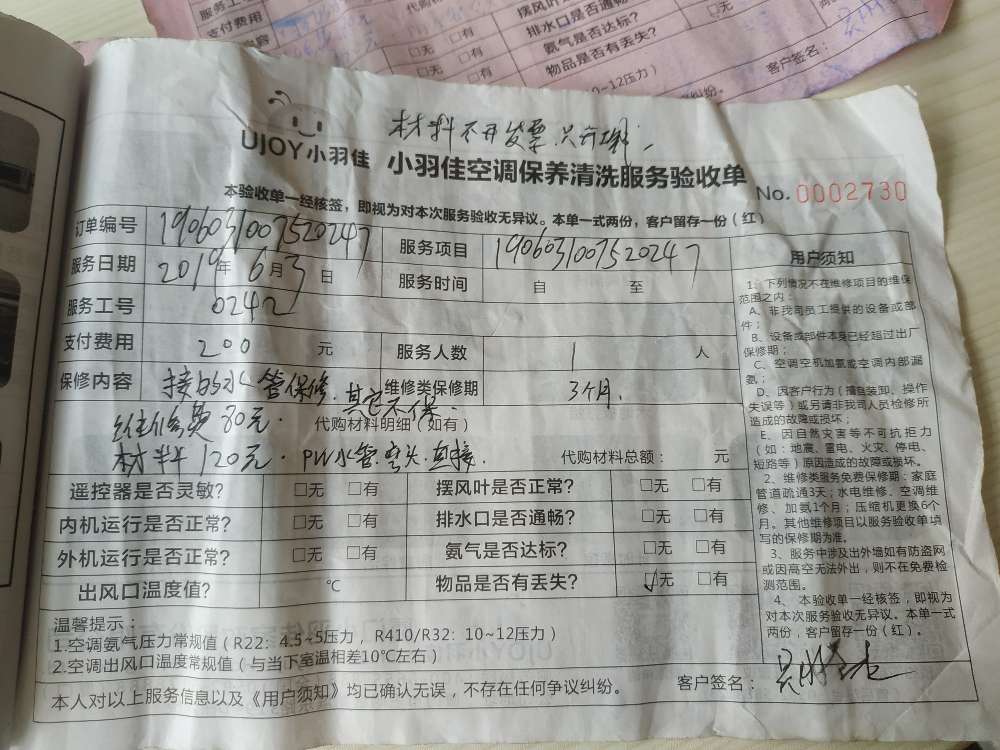 服务工
支付费用
代购材料
摆风叶是
□无 □有
排水口是否通畅?
氨气是否达标?
□无 □有
物品是否有丢失?
客户签名:
10~12压力)
纠纷。
材料不开发票.只开
UJOY小羽佳 小羽佳空调保养清洗服务验收单 No. 0002730
本验收单一经核签,即视为对本次服务验收无异议。本单一式两份,客户留存一份(红)
订单编号 1906031007520247 服务项目 1906031007520247
服务日期 2019年6月3日 服务时间 自 至
服务工号 0242
支付费用 200 元 服务人数 1 人
保修内容 接的水管保修.其它不保. 维修类保修期 3个月.
维修费80元. 代购材料明细(如有)
材料120元. 水管.弯头.直接. 代购材料总额: 元
遥控器是否灵敏? □无 □有 摆风叶是否正常? □无 □有
内机运行是否正常? □无 □有 排水口是否通畅? □无 □有
外机运行是否正常? □无 □有 氨气是否达标? □无 □有
出风口温度值? ℃ 物品是否有丢失? ☑无 □有
温馨提示:
1.空调氨气压力常规值(R22:4.5~5压力,R410/R32:10~12压力)
2.空调出风口温度常规值(与当下室温相差10℃左右)
本人对以上服务信息以及《用户须知》均已确认无误,不存在任何争议纠纷。 客户签名:
用户须知
1、下列情况不在维修项目的维保
范围之内:
A、非我司员工提供的设备或部
件;
B、设备或部件本身已经超过出厂
保修期;
C、空调空机加氨或空调内部漏
氨;
D、因客户行为(擅自装卸、操作
失误等)或另请非我司人员检修所
造成的故障或损坏;
E、因自然灾害等不可抗拒力
(如:地震、雷电、火灾、停电、
短路等)原因造成的故障或损坏。
2、维修类服务免费保修期:家庭
管道疏通3天;水电维修、空调维
修、加氨1个月;压缩机更换6个
月。其他维修项目以服务验收单填
写的保修期为准。
3、服务中涉及出外墙如有防盗网
或因高空无法外出,则不在免费检
测范围。
4、本验收单一经核签,即视为
对本次服务验收无异议。本单一式
两份,客户留存一份(红)。